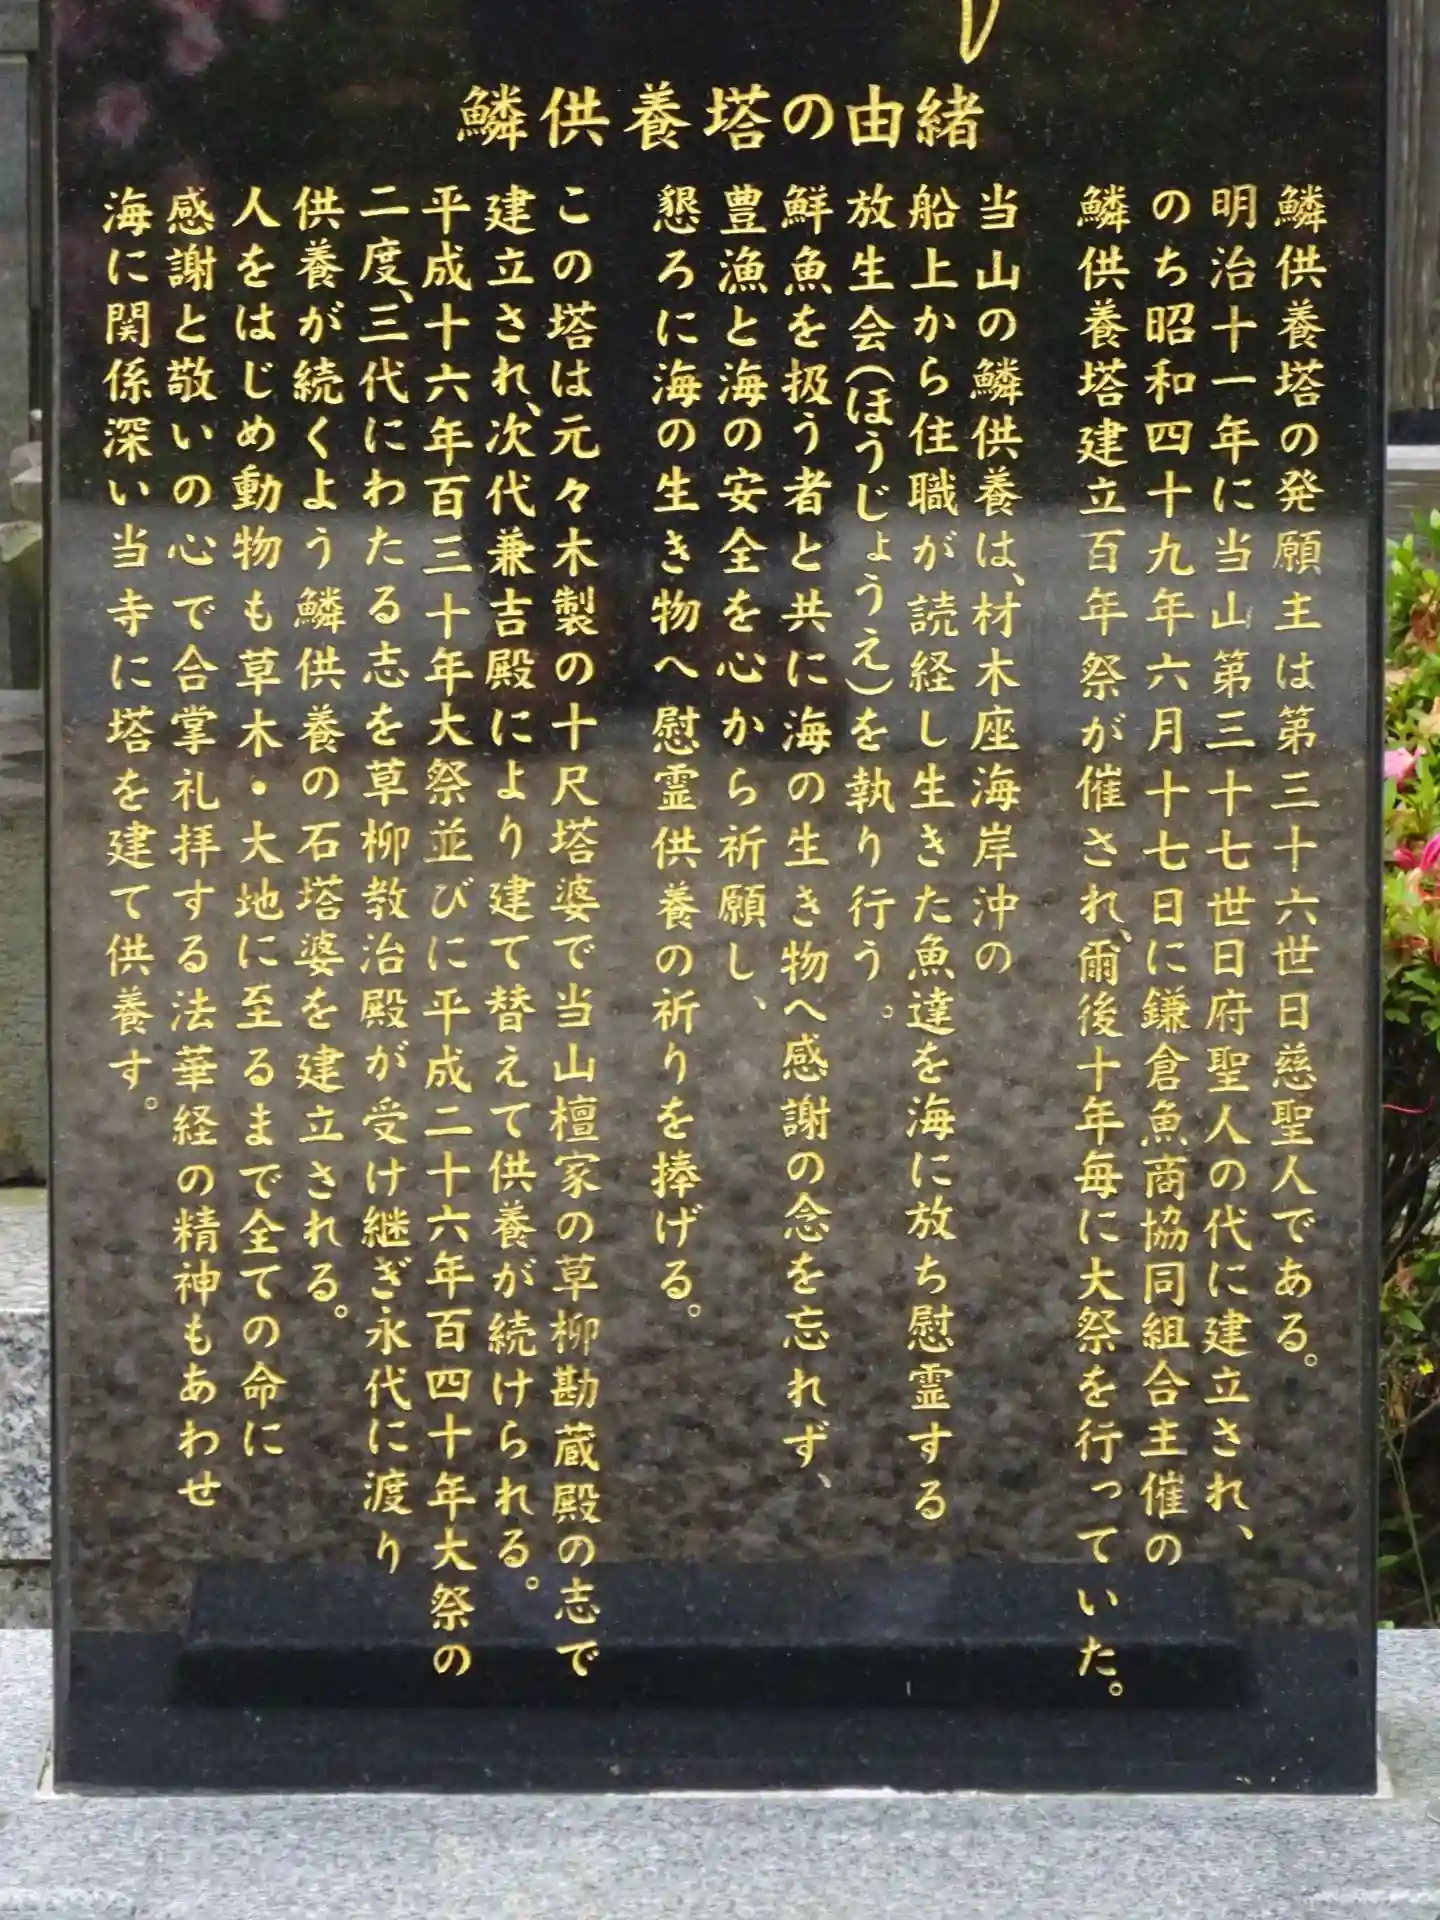 鱗供養塔の由緒
鱗供養塔の発願主は第三十六世日慈聖人である。
明治十一年に当山第三十七世日府聖人の代に建立され、
のち昭和四十九年六月十七日に鎌倉魚商協同組合主催の
鱗供養塔建立百年祭が催され、爾後十年毎に大祭を行っていた。
当山の鱗供養は、材木座海岸沖の
船上から住職が読経し生きた魚達を海に放ち慰霊する
放生会(ほうじょうえ)を執り行う。
鮮魚を扱う者と共に海の生き物へ感謝の念を忘れず、
豊漁と海の安全を心から祈願し、
懇ろに海の生き物へ慰霊供養の祈りを捧げる。
この塔は元々木製の十尺塔婆で当山檀家の草柳勘蔵殿の志で
建立され、次代兼吉殿により建て替えて供養が続けられる。
平成十六年百三十年大祭並びに平成二十六年百四十年大祭の
二度、三代にわたる志を草柳教治殿が受け継ぎ永代に渡り
供養が続くよう鱗供養の石塔婆を建立される。
人をはじめ動物も草木・大地に至るまで全ての命に
感謝と敬いの心で合掌礼拝する法華経の精神もあわせ
海に関係深い当寺に塔を建て供養す。